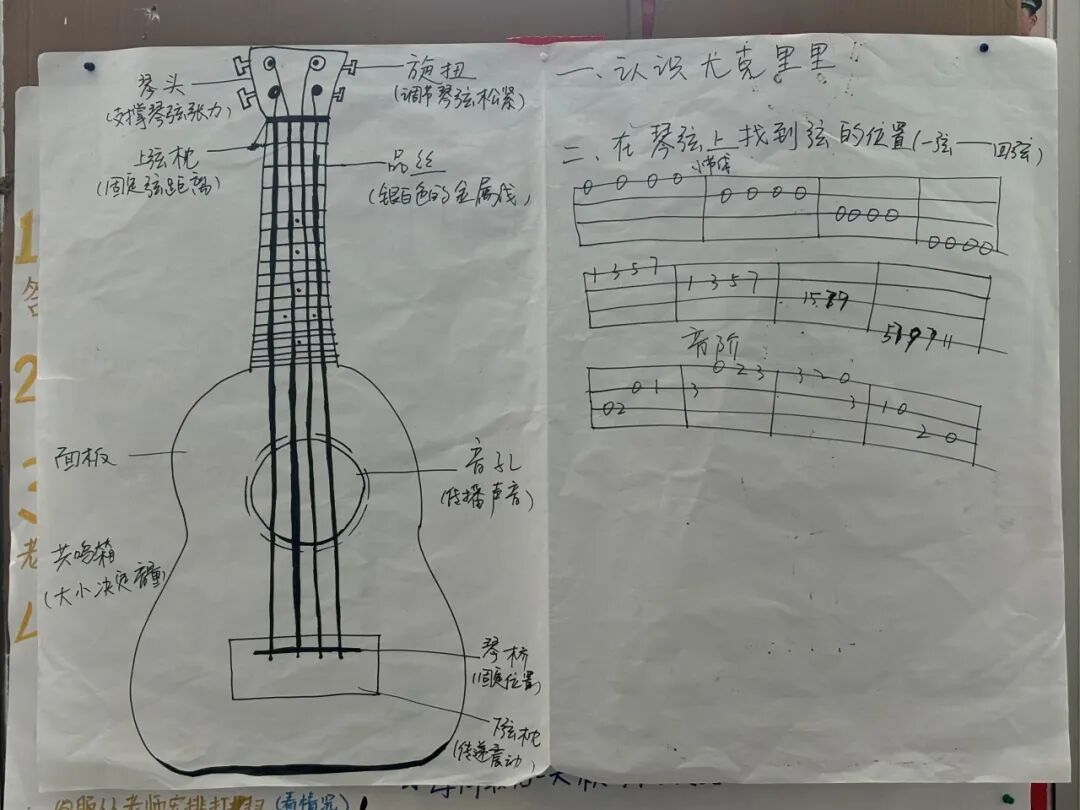 琴头
(支撑琴弦张力)
旋扭
(调节琴弦松紧)
上弦枕
(固定弦距离)
品丝
(银白色的金属线)
面板
音孔
(传播声音)
共鸣箱
(大小决定音量)
琴桥
(固定位置)
下弦枕
(传递震动)
一、认识尤克里里
二、在琴弦上找到弦的位置(一弦——四弦)
0 0 0 0 0 0 0 0 0 0 0 0 0 0 0 0
1 3 5 7 1 3 5 7
音阶
02 0 1 3 0 2 3 3 2 0 3 1 0 2 0
1
答
2
3
老
(看情况)